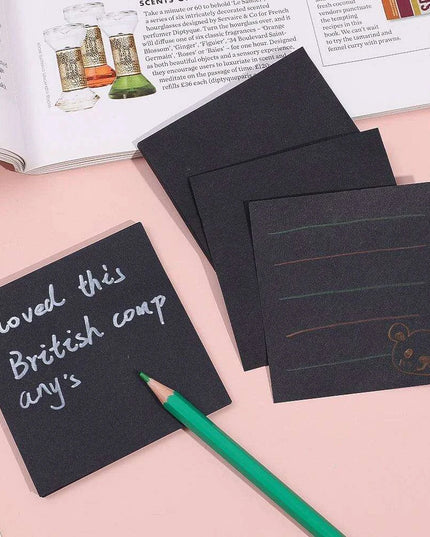 SCENTS &
Take a mere 60 to behold 'Le Sablier'
a series of six intricately decorated
hourglasses designed by Servaire & Co for French
perfumer Diptyque. Turn the hourglass over, and it
will diffuse one of six classic fragrances –
Blossom', 'Ginger', 'Figuier', '34 Boulevard Saint-
Germain', 'Roses' or 'Baies' – for one hour. Designed
as both beautiful objects and a sensory exercise,
they encourage users to luxuriate in scent and
meditate on the passing of time. £120,
refills £36 each (diptyqueparis.
fresh coconut
vendors punctuate
the tempting
recipes in this
book. We can't wait
to try the tamarind and
fennel curry with prawns.
oved this
British comp
any's